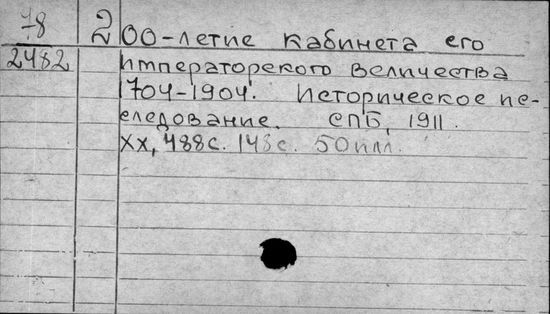 78
2482
200-летие Кабинета его
императорского Величества
1704-1904. Историческое ис-
следование. СПБ, 1911.
XX, 488с. 143с. 50 илл.